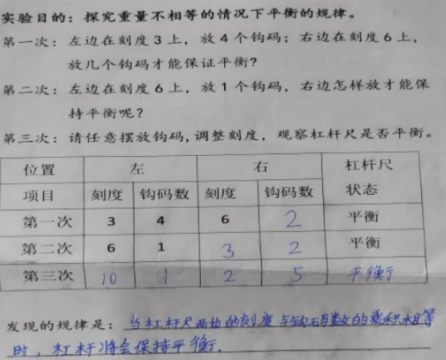 实验目的：探究重量不相等的情况下平衡的规律。
第一次：左边在刻度3上，放4个钩码；右边在刻度6上，
放几个钩码才能保证平衡？
第二次：左边在刻度6上，放1个钩码，右边怎样放才能保
持平衡呢？
第三次：请任意摆放钩码,调整刻度，观察杠杆尺是否平衡。
位置 左 右 杠杆尺
项目 刻度 钩码数 刻度 钩码数 状态
第一次 3 4 6 2 平衡
第二次 6 1 3 2 平衡
第三次 10 1 2 5 平衡
发现的规律是：当杠杆尺两边的刻度与钩码数的乘积相等
时，杠杆将会保持平衡.